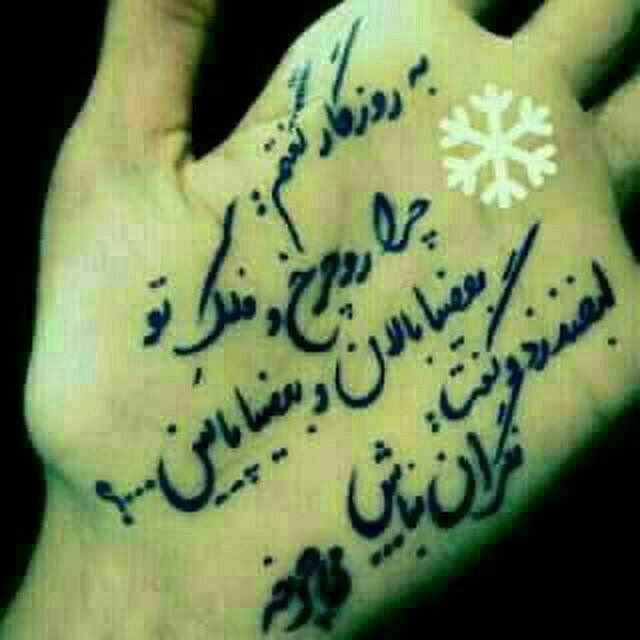 به روزگار گفتم:
چرا رو چرخ و فلک تو
بعضیا بالان و بعضیا پایین...؟
لبخند زد و گفت:
نگران نباش
می‌چرخه